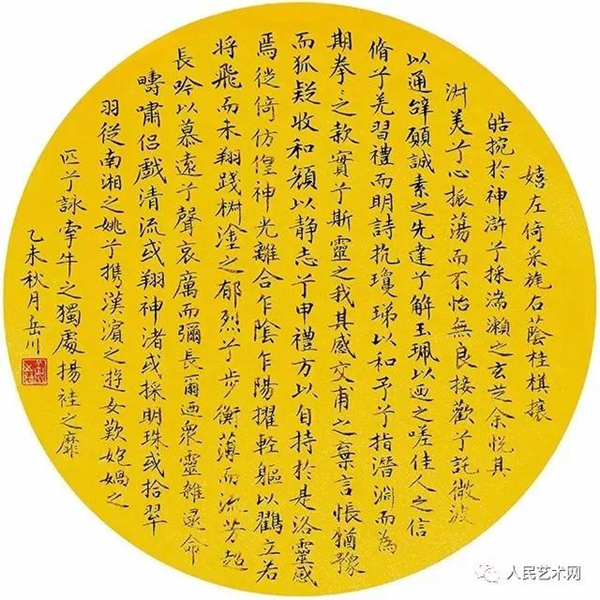 嬉左倚采旄右蔭桂棋攘
皓捥於神滸兮採湍瀨之玄芝余悅其
淑美兮心振蕩而不怡無良接歡兮託微波
以通辭願誠素之先達兮解玉珮以迺之嗟佳人之信
脩兮羌習禮而明詩抗瓊珶以和予兮指潛淵而為
期拳〻之款實兮斯靈之我其感交甫之棄言悵猶豫
而狐疑收和顏以靜志兮申禮方以自持於是洛靈感
焉徙倚仿偟神光離合乍陰乍陽擢輕軀以鸖立若
將飛而未翔踐椒塗之郁烈兮步衡薄而流芳超
長吟以慕遠兮聲哀厲而彌長爾迺眾靈雜遝命
疇嘯侶戲清流或翔神渚或採明珠或拾翠
羽從南湘之姚兮攜漢濱之遊女歎匏媧之
匹兮詠牽牛之獨處揚袿之靡
乙未秋月岳川
人民艺术网